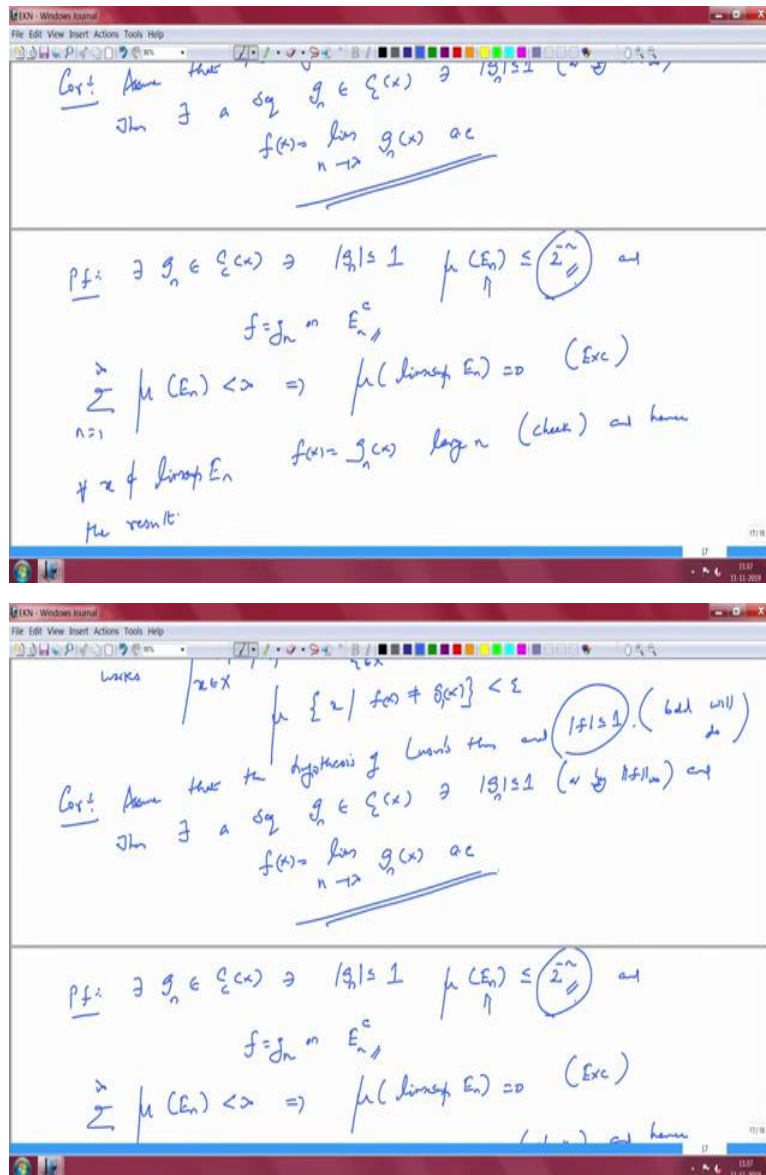 EKN - Windows Journal
File Edit View Insert Actions Tools Help
Cor: Assume that
Then ∃ a seq g_n ∈ C_c(x) ∋ |g_n| ≤ 1
f(x) = lim_{n→∞} g_n(x) a.e
Pf: ∃ g_n ∈ C_c(x) ∋ |g_n| ≤ 1 μ(E_n) ≤ 2^{-n} and
f = g_n on E_n^c
∑_{n=1}^∞ μ(E_n) < ∞ ⇒ μ(limsup E_n) = 0 (Exc)
∀ x ∉ limsup E_n f(x) = g_n(x) large n (check) and hence
the result.
17/18
17
11:37
11-11-2019
EKN - Windows Journal
File Edit View Insert Actions Tools Help
works x∈X
μ {x | f(x) ≠ g(x)} < ε
Cor: Assume that the hypothesis of Lusin's thm and |f| ≤ 1. (bdd will do)
Then ∃ a seq g_n ∈ C_c(x) ∋ |g_n| ≤ 1 (or by ||f||_∞) and
f(x) = lim_{n→∞} g_n(x) a.e
Pf: ∃ g_n ∈ C_c(x) ∋ |g_n| ≤ 1 μ(E_n) ≤ 2^{-n} and
f = g_n on E_n^c
∑ μ(E_n) < ∞ ⇒ μ(limsup E_n) = 0 (Exc)
and hence
17/18
17
11:37
11-11-2019